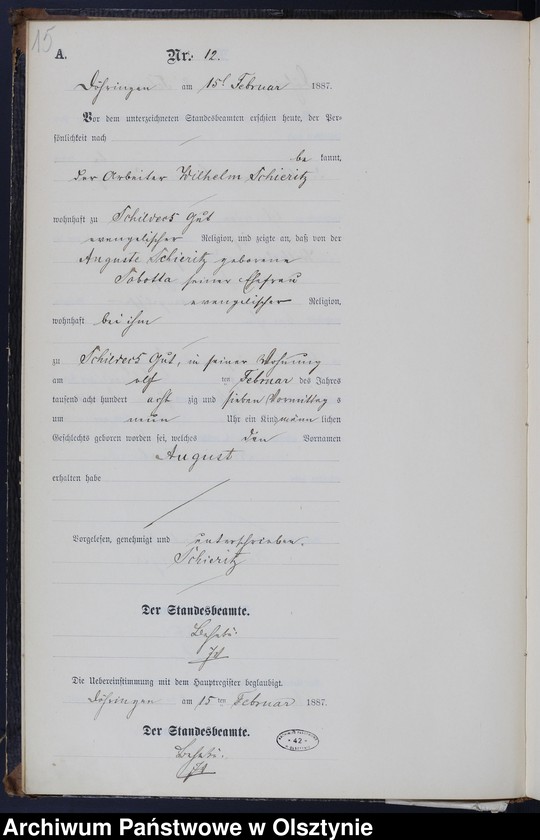 15
A. Nr. 12.
Döhringen am 15t Februar 1887.
Vor dem unterzeichneten Standesbeamten erschien heute, der Per-
sönlichkeit nach
be kannt,
der Arbeiter Wilhelm Schieritz
wohnhaft zu Schilders Gut
evangelischer Religion, und zeigte an, daß von der
Auguste Schieritz geborene
Sobotta seiner Ehefrau
evangelischer Religion,
wohnhaft bei ihm
zu Schilders Gut, in seiner Wohnung
am elf ten Februar des Jahres
tausend acht hundert acht zig und sieben Vormittag s
um neun Uhr ein Kind männ lichen
Geschlechts geboren worden sei, welches den Vornamen
August
erhalten habe
Vorgelesen, genehmigt und unterschrieben.
Schieritz
Der Standesbeamte.
Die Uebereinstimmung mit dem Hauptregister beglaubigt.
Döhringen am 15 ten Februar 1887.
Der Standesbeamte.
42
Archiwum Państwowe w Olsztynie